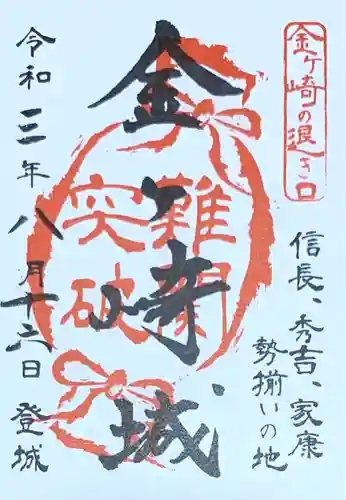 金ヶ崎の退き口
信長、秀吉、家康
勢揃いの地
金ヶ崎城
難関
突破
令和三年八月十六日登城